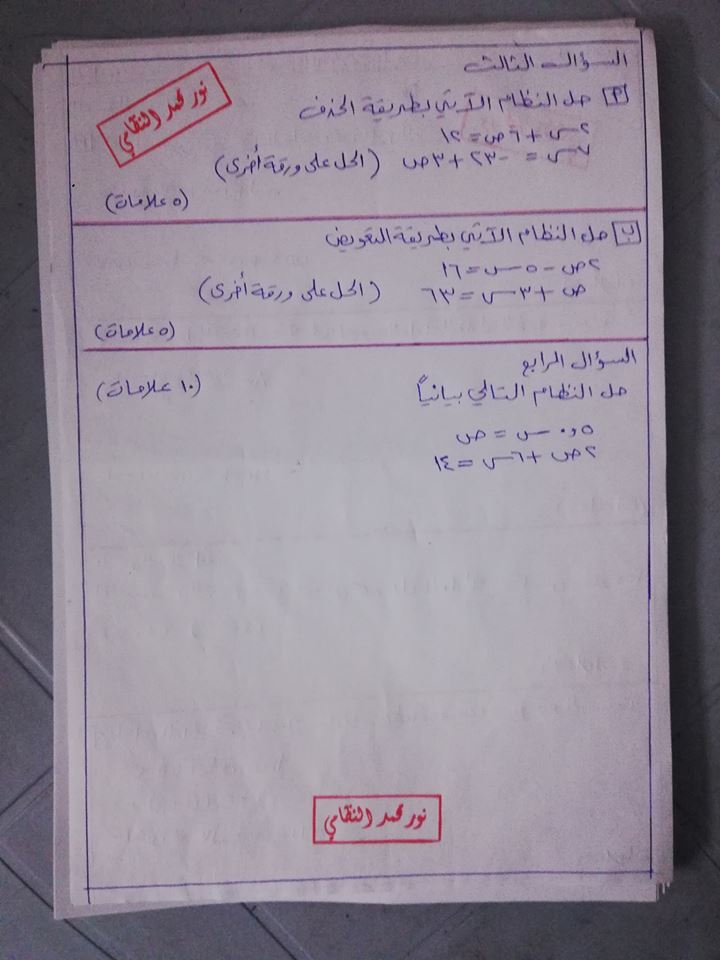 السؤال الثالث
نور محمد النقامي
أ حل النظام الآتي بطريقة الحذف
٢س + ٦ص = ١٢
٧س = -٢٣ + ٣ص (الحل على ورقة أخرى)
(٥ علامات)
ب حل النظام الآتي بطريقة التعويض
٢ص - ٥س = ١٦
ص + ٣س = ٦٣ (الحل على ورقة أخرى)
(٥ علامات)
السؤال الرابع
حل النظام التالي بيانياً (١٠ علامات)
٠,٥ س = ص
٢ص + ٦س = ١٤
نور محمد النقامي